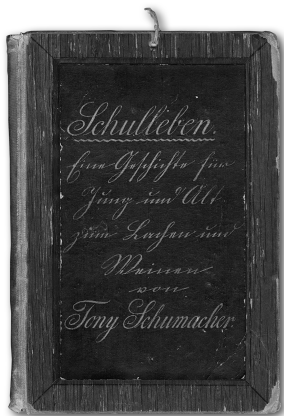 Schulleben.
Eine Geschichte für
Jung und Alt
zum Lachen und
Weinen
von
Tony Schumacher.